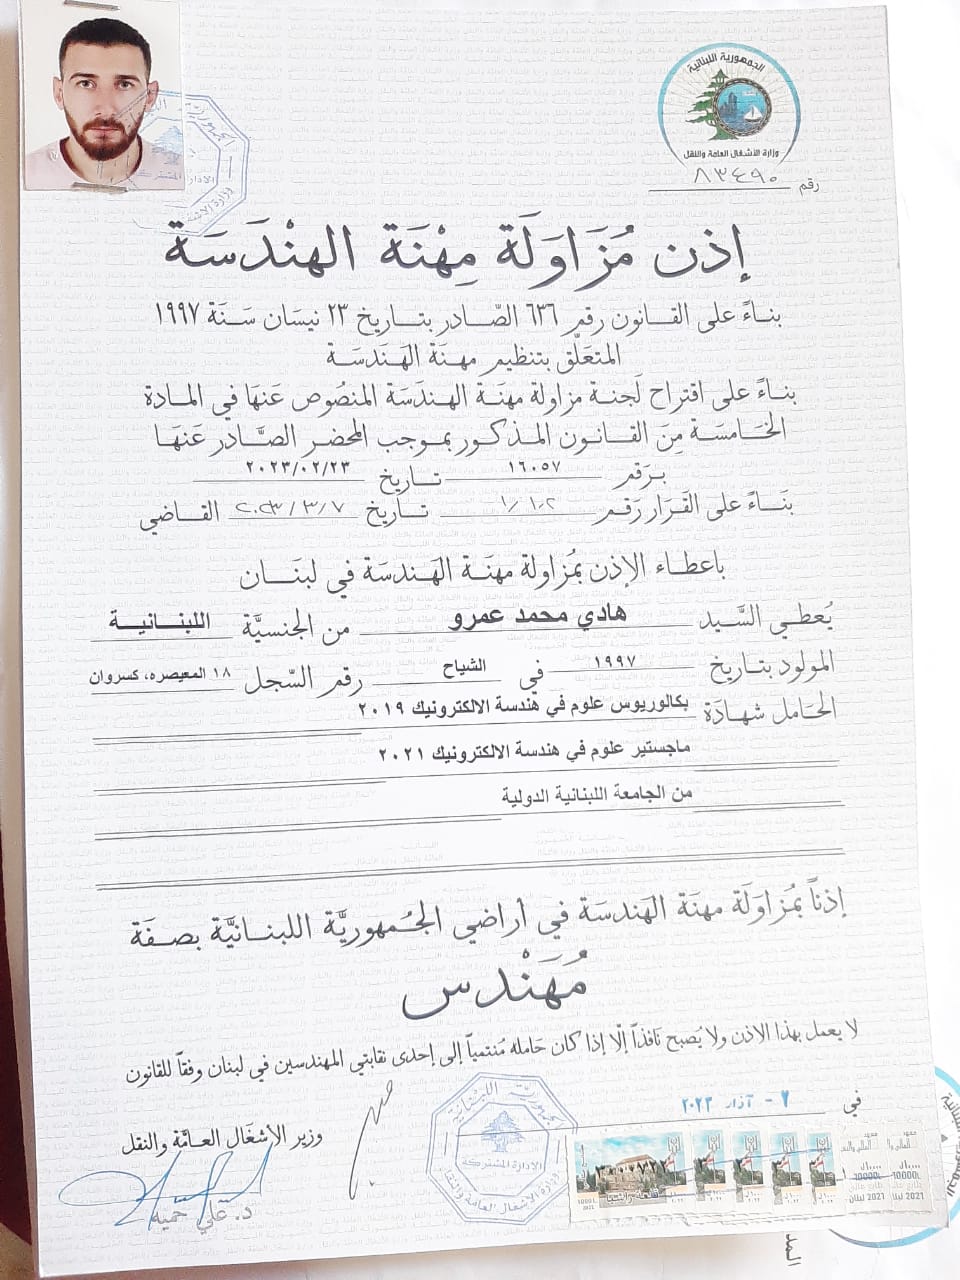 الجمهورية اللبنانية
وزارة الأشغال العامة والنقل
رقم ٨٣٤٩٠
إذن مُزَاوَلَة مِهْنَة الهنْدَسَة
بنــاءً على القــانون رقم ٦٣٦ الصّـادر بتــاريخ ٢٣ نيسَان سَـنَة ١٩٩٧
المتعَلّق بتنظيم مهنَة الهَندَسَـة
بناءً على اقتراح لَجنـة مزاولة مهنَـة الهـندَسَة المنصُوص عَنهَا في المـادة
الخَـامسَـة مِنَ القــانون المـذكـور بمـوجب المحضـر الصَّـادر عَنهَـا
بـرَقم ١٦٠٥٧ تـاريخ ٢٠٢٣/٠٢/٢٣
بنَـاءً على القَـرار رَقَـم ١/١٠٢ تــاريخ ٢٠٢٣/٣/٧ القــاضي
باعطـاء الإذن بمُزاولة مهنَـة الهَـندسَة في لبنَــان
يُعطـي السَّـيد هادي محمد عمرو من الجنسيَّة اللبنـانيـة
المولود بتـاريخ ١٩٩٧ في الشياح رقم السّجل ١٨ المعيصره، كسروان
الحَـامل شهـادَة بكالوريوس علوم في هندسة الالكترونيك ٢٠١٩
ماجستير علوم في هندسة الالكترونيك ٢٠٢١
من الجامعة اللبنانية الدولية
إذناً بمُـزاوَلَة مهنَة الهَندسَة في أراضي الجُـمهوريَّة اللبنـانيَّة بصـفَة
مُهَنْدس
لا يعمل بهذا الاذن ولا يُصبح نَافذاً إلّا إذا كان حَامله مُنتمياً إلى إحدى نقابتي المهندسين في لبنان وفقاً للقانون
في ٧ - آذار ٢٠٢٣
وزير الإشغَال العـامَّة والنقل
د. علي حميه
الجمهورية اللبنانية
الادارة المشتركة
وزارة الاشغال العامة والنقل
قلعة راشيا
10000L
10000L
2021 لبنان
2021